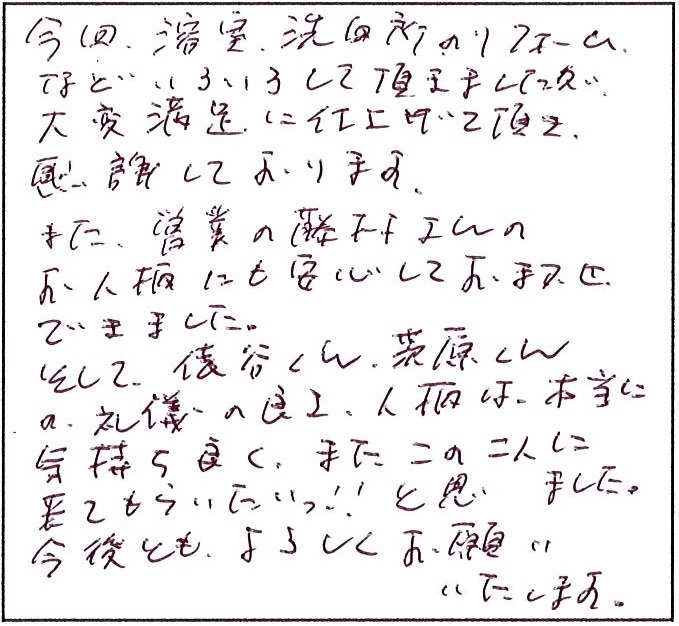 今回、浴室、洗面所のリフォーム、
などいろいろして頂きましたが、
大変満足に仕上げて頂き、
感謝しております。
また、営業の藤村さんの
お人柄にも安心してお任せ
できました。
そして、俵谷くん、荒原くん
の、礼儀の良さ、人柄は、本当に
気持ち良く、またこの二人に
来てもらいたいっ!!と思いました。
今後とも、よろしくお願い
いたします。